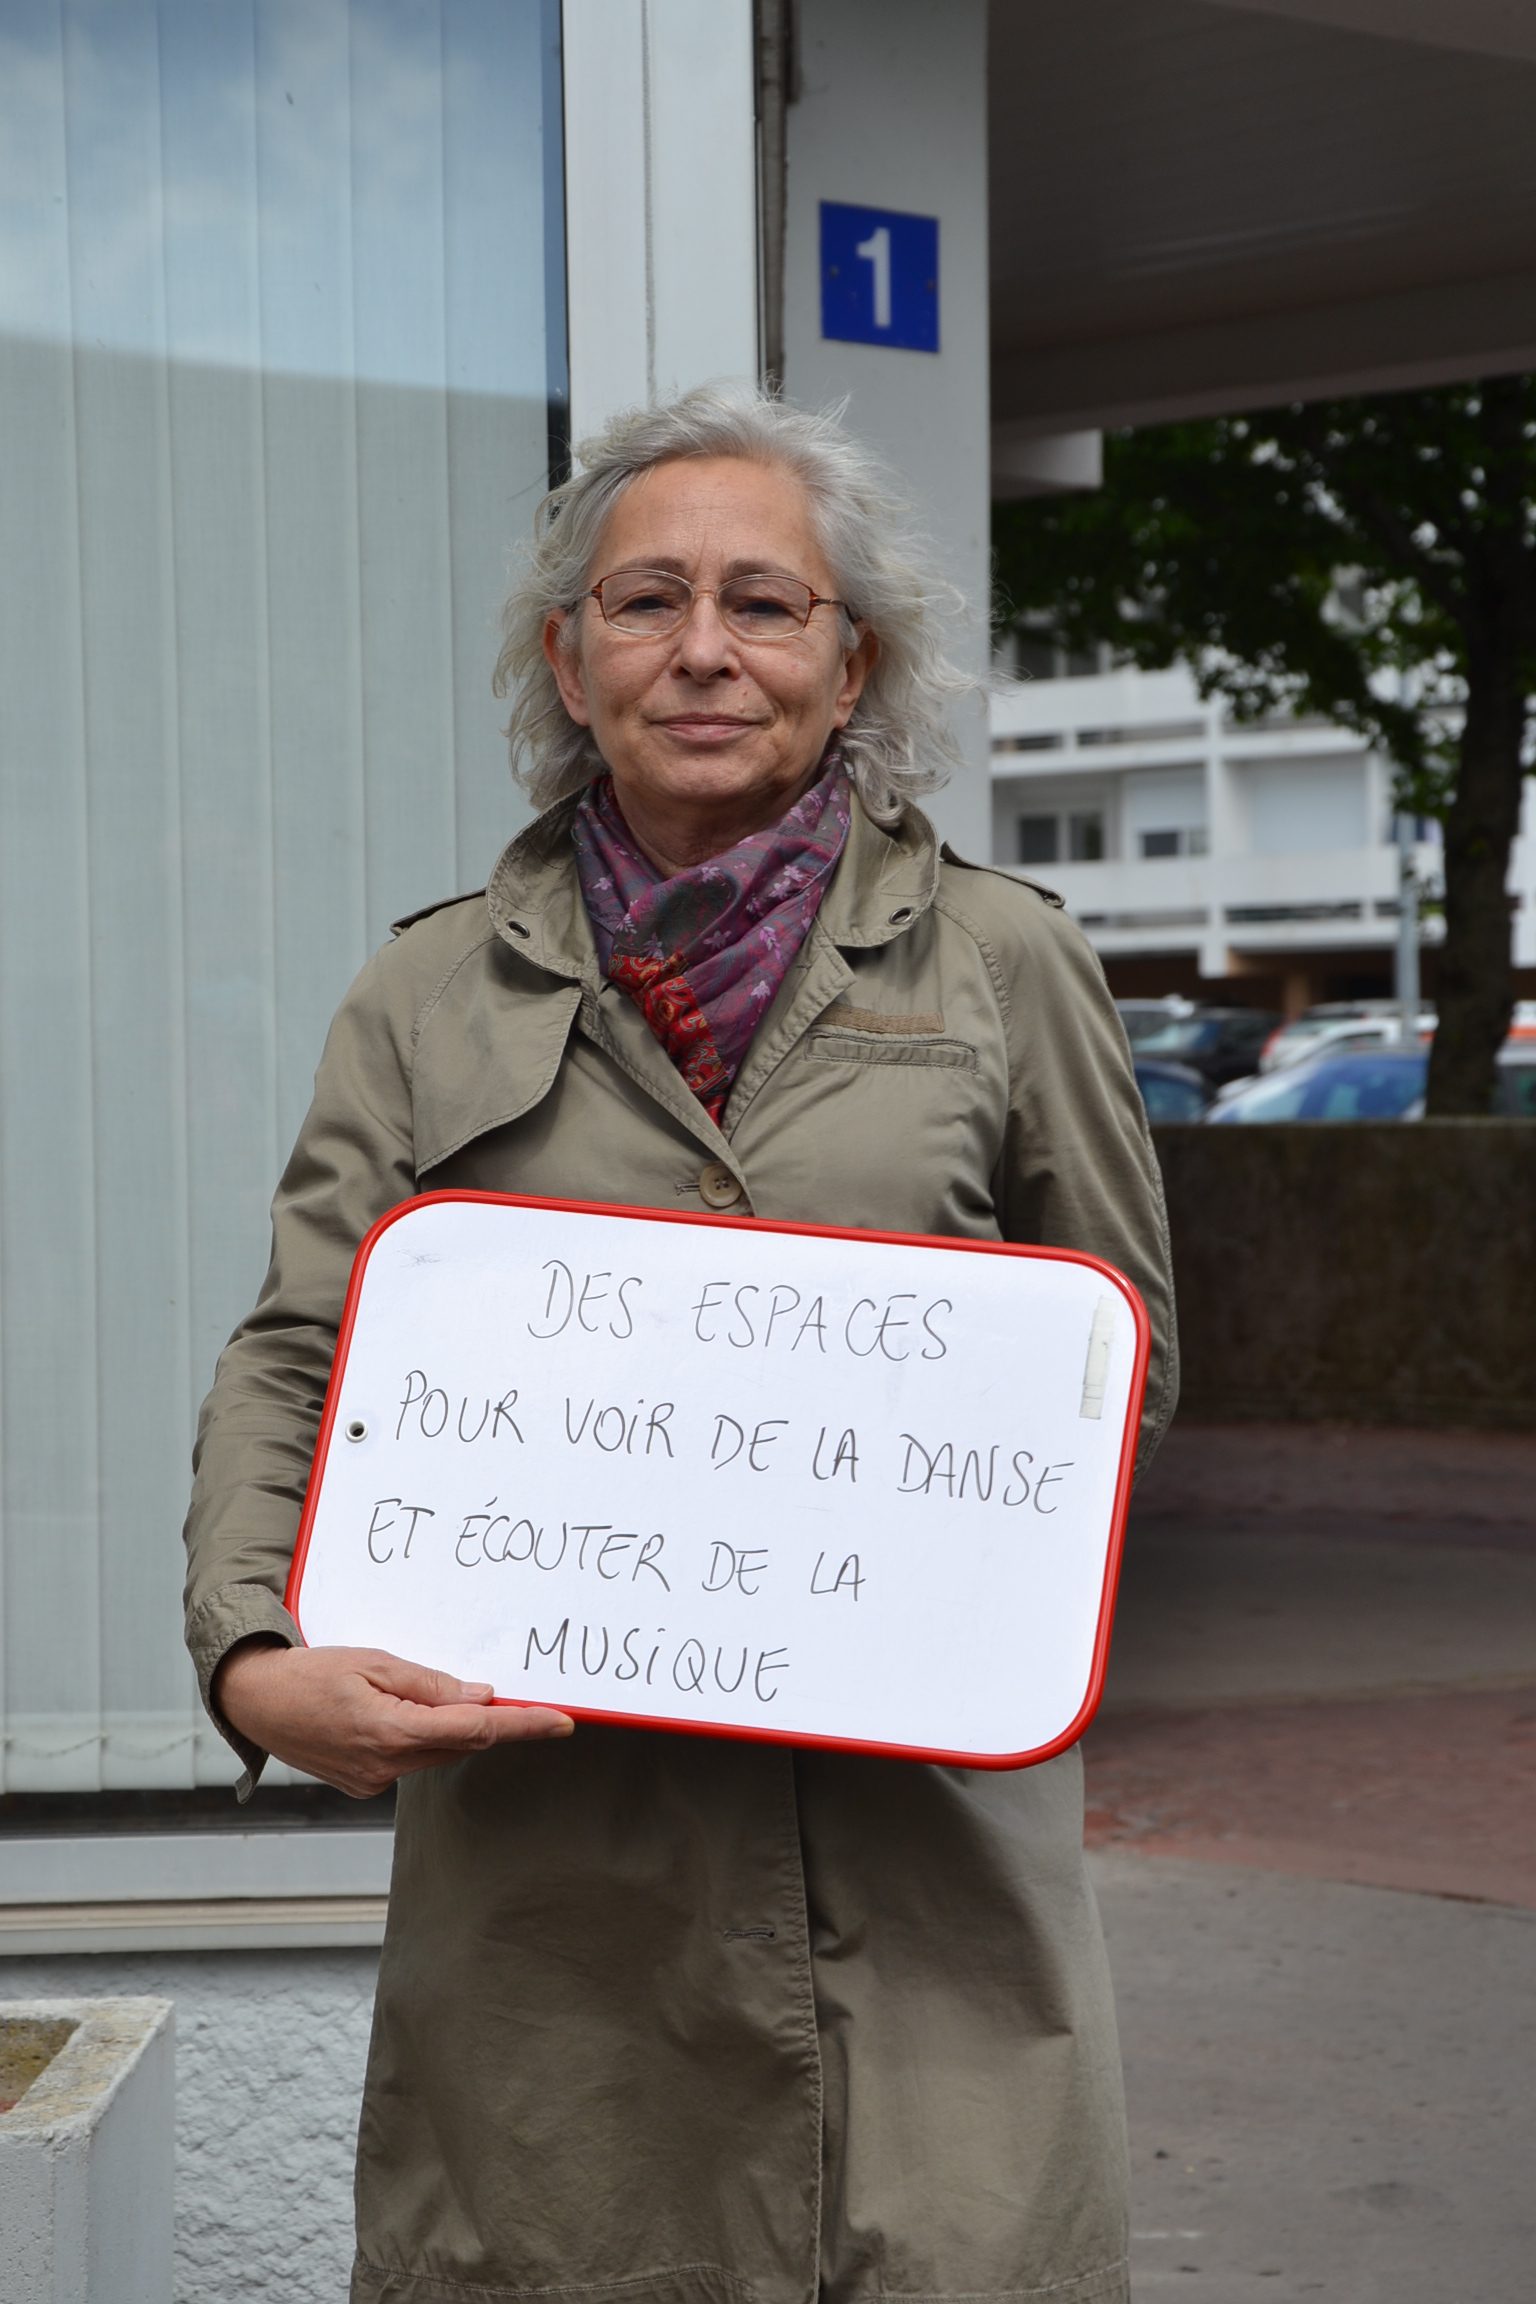 1
DES ESPACES
POUR VOiR DE LA DANSE
ET ÉCOUTER DE LA
MUSiQUE